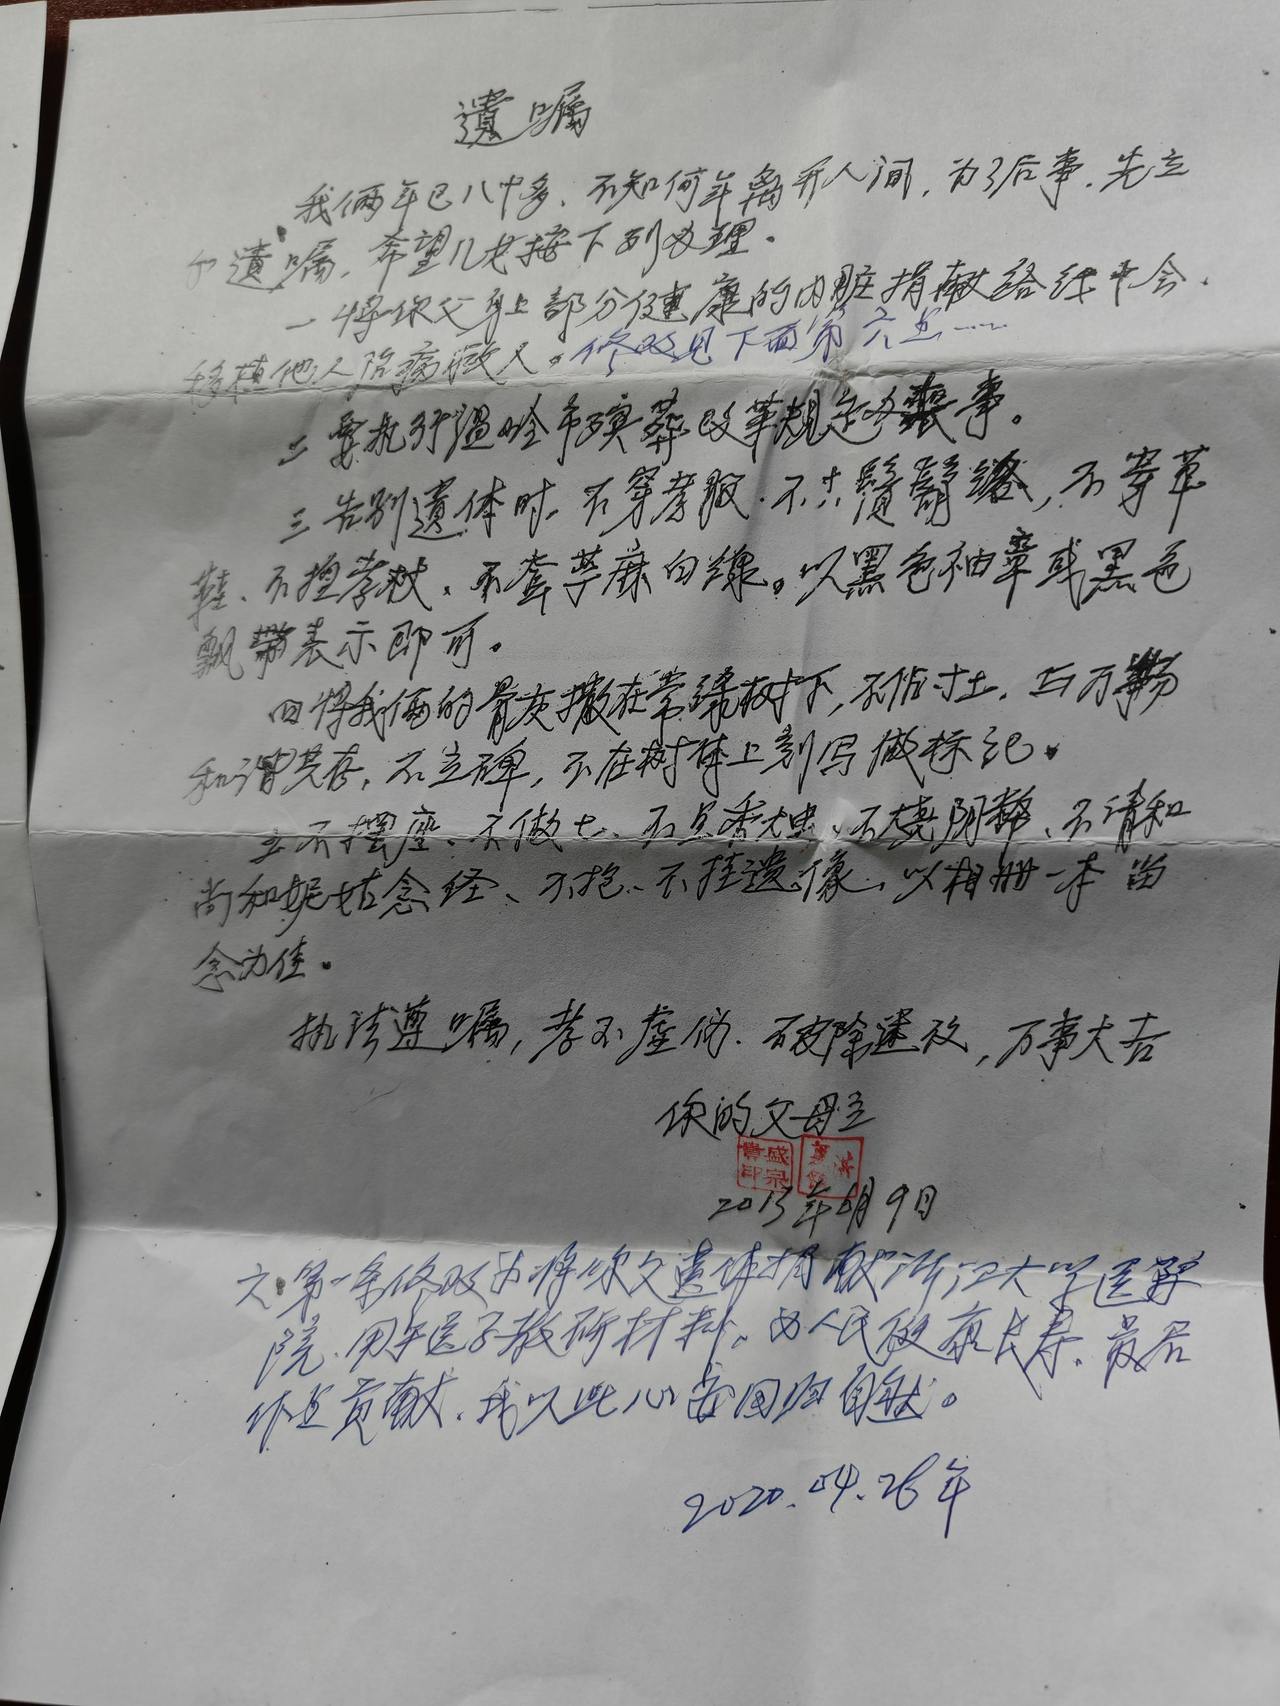 遺嘱
我俩年已八十多、不知何年离开人间，为了后事，先立
个遺嘱，希望儿女按下列办理。
一 将你父身上部分健康的内脏捐献给红十会、
移植他人治病救人。修改见下面第六点……
二 要执行温岭市殡葬改革规定办丧事。
三 告别遺体时、不穿孝服、不，不穿草
鞋、不捏孝杖、不苎麻白线。以黑色袖章或黑色
飘带表示即可。
四 将我俩的骨灰撒在常绿树下，不占寸土，与万物
和谐共存，不立碑，不在树体上刻写做标记。
五 不摆座、不做七、不点香烛、不烧阴币、不请和
尚和妮姑念经、不抱、不挂遗像，以相册一本留
念为佳。
执法遵嘱，孝不虚伪、破除迷放，万事大吉
你的父母立
盛宗
印 洪
2013年月9日
六、第一条修改为将你父遗体捐献浙江大学医学
院，用于医学教研材料。为人民健康长寿、最后
作点贡献、我以此心安回归自然。
2020.04.26年